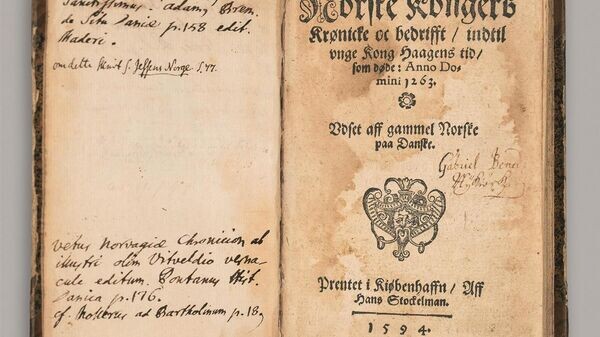 sanctissimus. adamg Brem.
de Situ Daniæ p.158 edit.
Maderi.
om dette skrift s. Jessens Norge S.77.
vetus norvagiæ Chronicion ab
illustri olim Uitveldio verna-
cule editum. Pontanus Hist.
Danica p.176.
cf. Mollerus ad Bartholinum p.18,
Norske Kongers
Krønicke oc bedrifft / indtil
vnge Kong Haagens tid /
som døde: Anno Do-
mini 1263.
Vdset aff gammel Norske
paa Danske.
Gabriel
Prentet i Kiøbenhaffn / Aff
Hans Stockelman.
1594.